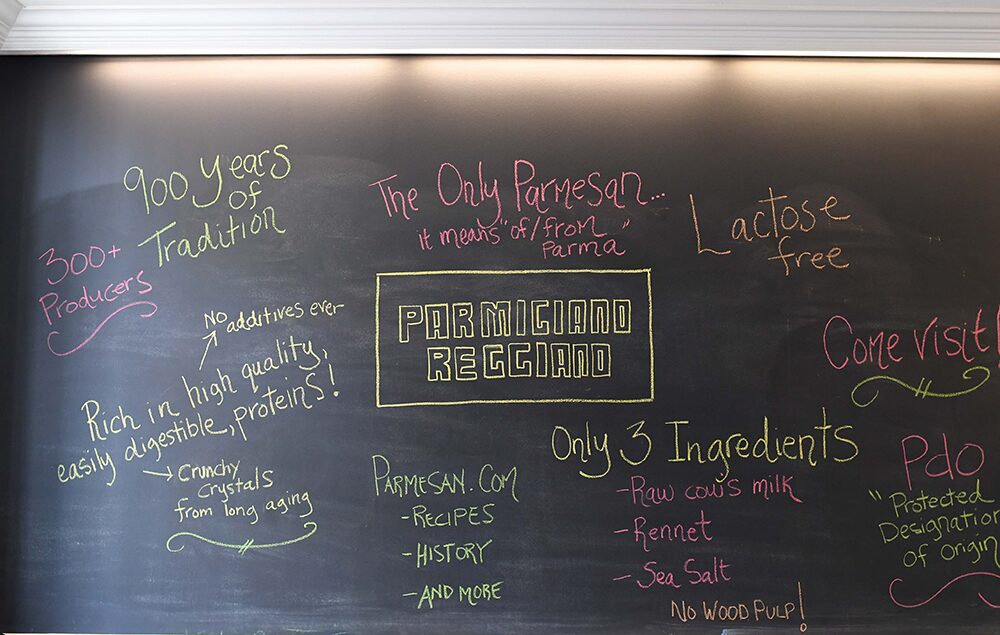 900 Years
of
Tradition
300+
Producers
The Only Parmesan...
it means "of/from
Parma"
Lactose
free
PARMIGIANO
REGGIANO
NO additives ever
Rich in high quality,
easily digestible, proteins!
Crunchy
Crystals
from long aging
Come visit!
PARMESAN.COM
- RECIPES
- HISTORY
- AND MORE
Only 3 Ingredients
- Raw cow's milk
- Rennet
- Sea Salt
No WOOD PULP!
Pdo
"Protected
Designation
of Origin